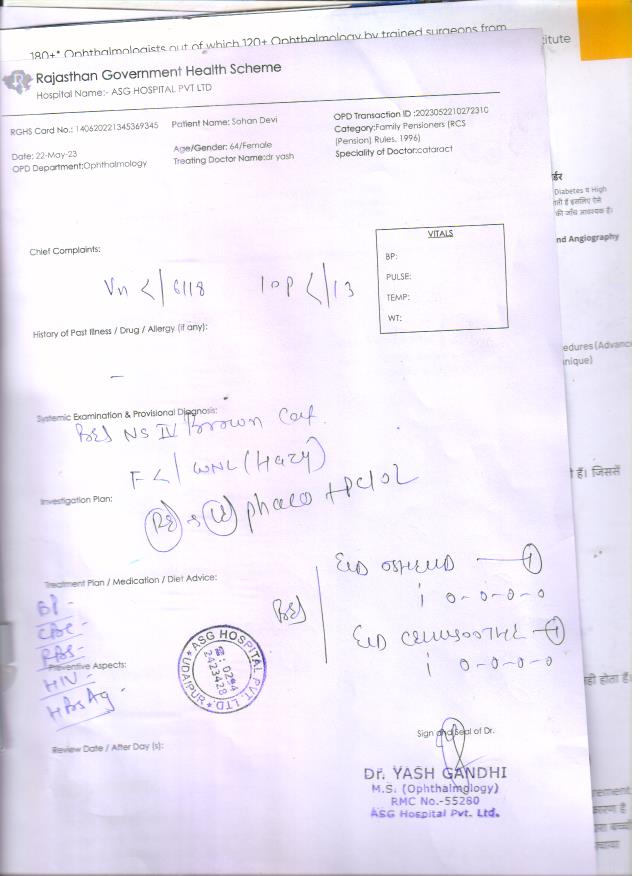 180+* Ophthalmologists out of which 120+ Ophthalmology by trained surgeons from
itute
Rajasthan Government Health Scheme
Hospital Name:- ASG HOSPITAL PVT LTD
RGHS Card No.: 140620221345369345
Patient Name: Sohan Devi
OPD Transaction ID :2023052210272310
Category:Family Pensioners (RCS
(Pension) Rules, 1996)
Date: 22-May-23
Age/Gender: 64/Female
OPD Department:Ophthalmology
Treating Doctor Name:dr yash
Speciality of Doctor:cataract
र्डर
Diabetes व High
की जाँच आवश्यक है।
nd Angiography
Chief Complaints:
VITALS
BP:
PULSE:
TEMP:
WT:
Vn < 6/18 IOP < 13
History of Past Illness / Drug / Allergy (if any):
edures (Advanc
nique)
Systemic Examination & Provisional Diagnosis:
BE NS IV Brown Cat.
F < WNL (Hazy)
है। जिससें
Investigation Plan:
RE LE phaco + PCIOL
Treatment Plan / Medication / Diet Advice:
BE
E/D
i 0-0-0-0
E/D
i 0-0-0-0
BP -
CBC -
RBS -
Preventive Aspects:
HIV -
HBsAg -
ASG HOSPITAL PVT. LTD. UDAIPUR
☎: 0294
2423428
ही होता हैं।
Sign and Seal of Dr.
Review Date / After Day (s):
Dr. YASH GANDHI
M.S. (Ophthalmology)
RMC No.-55280
ASG Hospital Pvt. Ltd.
rement
कारण है